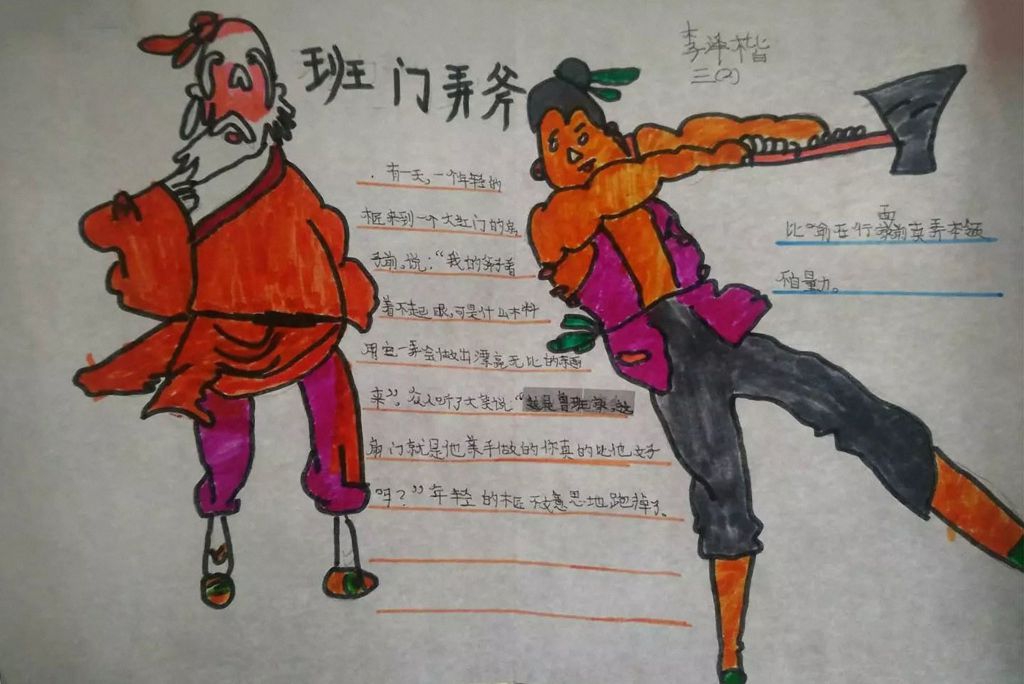 班门弄斧
李泽楷
三(2)
有一天,一个年轻的
来到一个大红门的房
子前,说:“我的斧子看
着不起眼,可是什么木料
用它一弄会做出漂亮无比的东西
来”。众人听了大笑说“这是鲁班家,这
扇门就是他亲手做的你真的比他好
吗?”年轻的 意思地跑掉了。
比喻在行家面前卖弄本领
不自量力。